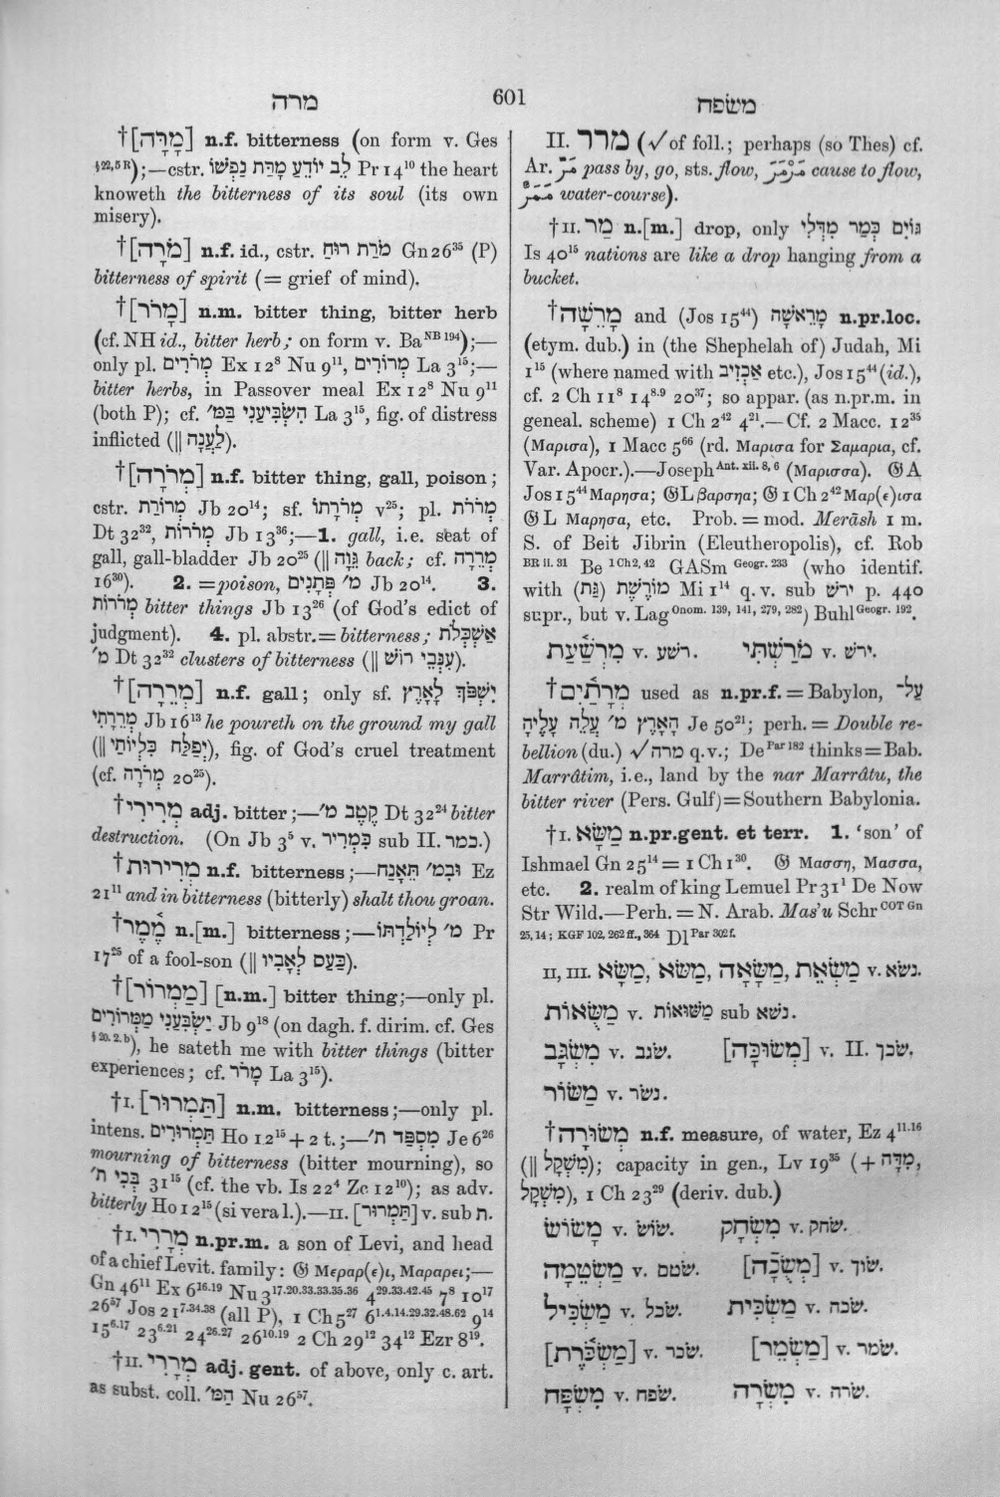 מרה 601 משׂפח
†[מָרָּה] n.f. bitterness (on form v. Ges
§22,5 R);—cstr. לֵב יוֹדֵעַ מָרַּת נַפְשׁוֹ Pr 14¹⁰ the heart
knoweth the bitterness of its soul (its own
misery).
†[מֹרָה] n.f. id., cstr. מֹרַת רוּחַ Gn 26³⁵ (P)
bitterness of spirit (= grief of mind).
†[מָרֹר] n.m. bitter thing, bitter herb
(cf. NH id., bitter herb; on form v. Ba NB 194);—
only pl. מְרֹרִים Ex 12⁸ Nu 9¹¹, מְרוֹרִים La 3¹⁵;—
bitter herbs, in Passover meal Ex 12⁸ Nu 9¹¹
(both P); cf. הִשְׂבִּיעַנִי בַמּ׳ La 3¹⁵, fig. of distress
inflicted (|| לַעֲנָה).
†[מְרֹרָה] n.f. bitter thing, gall, poison;
cstr. מְרוֹרַת Jb 20¹⁴; sf. מְרֹרָתוֹ v²⁵; pl. מְרֹרֹת
Dt 32³², מְרֹרוֹת Jb 13³⁶;—1. gall, i.e. seat of
gall, gall-bladder Jb 20²⁵ (|| גֵּוָה back; cf. מְרֵרָה
16³⁰). 2. = poison, מ׳ פְּתָנִים Jb 20¹⁴. 3.
מְרֹרוֹת bitter things Jb 13²⁶ (of God's edict of
judgment). 4. pl. abstr. = bitterness; אַשְׁכְּלֹת
מ׳ Dt 32³² clusters of bitterness (|| עִנְּבֵי רוֹשׁ).
†[מְרֵרָה] n.f. gall; only sf. יִשְׁפֹּךְ לָאָרֶץ
מְרֵרָתִי Jb 16¹³ he poureth on the ground my gall
(|| יְפַלַּח כִּלְיוֹתַי), fig. of God's cruel treatment
(cf. מְרֹרָה 20²⁵).
†מְרִירִי adj. bitter;—קֶטֶב מ׳ Dt 32²⁴ bitter
destruction. (On Jb 3⁵ v. כַּמְרִיר sub II. כמר.)
†מְרִירוּת n.f. bitterness;—וּבִמ׳ תֵּאָנַח Ez
21¹¹ and in bitterness (bitterly) shalt thou groan.
†מֶמֶר n.[m.] bitterness;—מ׳ לְיוֹלַדְתּוֹ Pr
17²⁵ of a fool-son (|| כַּעַס לְאָבִיו).
†[מַמְרוֹר] [n.m.] bitter thing;—only pl.
יַשְׂבִּעַנִי מַמְּרוֹרִים Jb 9¹⁸ (on dagh. f. dirim. cf. Ges
§20. 2. b), he sateth me with bitter things (bitter
experiences; cf. מָרֹר La 3¹⁵).
†I. [תַּמְרוּר] n.m. bitterness;—only pl.
intens. תַּמְרוּרִים Ho 12¹⁵ + 2 t.;—מִסְפַּד ת׳ Je 6²⁶
mourning of bitterness (bitter mourning), so
בְּכִי ת׳ 31¹⁵ (cf. the vb. Is 22⁴ Zc 12¹⁰); as adv.
bitterly Ho 12¹⁵ (si vera l.).—II. [תַּמְרוּר] v. sub ת.
†I. מְרָרִי n.pr.m. a son of Levi, and head
of a chief Levit. family: 𝔊 Μεραρ(ε)ι, Μαραρει;—
Gn 46¹¹ Ex 6¹⁶·¹⁹ Nu 3¹⁷·²⁰·³³·³³·³⁵·³⁶ 4²⁹·³³·⁴²·⁴⁵ 7⁸ 10¹⁷
26⁵⁷ Jos 21⁷·³⁴·³⁸ (all P), 1 Ch 5²⁷ 6¹·⁴·¹⁴·²⁹·³²·⁴⁸·⁶² 9¹⁴
15⁶·¹⁷ 23⁶·²¹ 24²⁶·²⁷ 26¹⁰·¹⁹ 2 Ch 29¹² 34¹² Ezr 8¹⁹.
†II. מְרָרִי adj. gent. of above, only c. art.
as subst. coll. הַמּ׳ Nu 26⁵⁷.
II. מרר (√ of foll.; perhaps (so Thes) cf.
Ar. مَرَّ pass by, go, sts. flow, مَرْمَرَ cause to flow,
مَمَرّ water-course).
†II. מַר n.[m.] drop, only גּוֹיִם כְּמַר מִדְּלִי
Is 40¹⁵ nations are like a drop hanging from a
bucket.
†מָרֵשָׁה and (Jos 15⁴⁴) מָרֵאשָׁה n.pr.loc.
(etym. dub.) in (the Shephelah of) Judah, Mi
1¹⁵ (where named with אַכְזִיב etc.), Jos 15⁴⁴ (id.),
cf. 2 Ch 11⁸ 14⁸·⁹ 20³⁷; so appar. (as n.pr.m. in
geneal. scheme) 1 Ch 2⁴² 4²¹.—Cf. 2 Macc. 12³⁵
(Μαρισα), 1 Macc 5⁶⁶ (rd. Μαρισα for Σαμαρια, cf.
Var. Apocr.).—Joseph Ant. xii. 8, 6 (Μαρισσα). 𝔊 A
Jos 15⁴⁴ Μαρησα; 𝔊L βαρσηα; 𝔊 1 Ch 2⁴² Μαρ(ε)ισα
𝔊 L Μαρησα, etc. Prob. = mod. Merâsh 1 m.
S. of Beit Jibrin (Eleutheropolis), cf. Rob
BR ii. 31 Be 1 Ch 2, 42 GASm Geogr. 233 (who identif.
with (גַּת) מוֹרֶשֶׁת Mi 1¹⁴ q.v. sub ירשׁ p. 440
supr., but v. Lag Onom. 139, 141, 279, 282) Buhl Geogr. 192.
מִרְשַׁעַת v. רשׁע. מֹרַשְׁתִּי v. ירשׁ.
†מְרָתַיִם used as n.pr.f. = Babylon, עַל־
הָאָרֶץ מ׳ עֲלֵה עָלֶיהָ Je 50²¹; perh. = Double re-
bellion (du.) √ מרה q.v.; De Par 182 thinks = Bab.
Marrâtim, i.e., land by the nar Marrâtu, the
bitter river (Pers. Gulf) = Southern Babylonia.
†I. מַשָּׂא n.pr.gent. et terr. 1. ‘son’ of
Ishmael Gn 25¹⁴ = 1 Ch 1³⁰. 𝔊 Μασση, Μασσα,
etc. 2. realm of king Lemuel Pr 31¹ De Now
Str Wild.—Perh. = N. Arab. Mas'u Schr COT Gn
25, 14; KGF 102, 262 ff., 364 Dl Par 302 f.
II, III. מַשָּׂא, מַשֹּׂא, מַשָּׂאָה, מַשְׂאֵת v. נשׂא.
מַשֻּׂאוֹת v. מַשּׁוּאוֹת sub נשׁא.
מִשְׂגָּב v. שׂגב. [מְשׂוּכָּה] v. II. שׂכך.
מַשּׂוֹר v. נשׂר.
†מְשׂוּרָה n.f. measure, of water, Ez 4¹¹·¹⁶
(|| מִשְׁקָל); capacity in gen., Lv 19³⁵ (+ מִדָּה,
מִשְׁקָל), 1 Ch 23²⁹ (deriv. dub.)
מָשׂוֹשׂ v. שׂושׂ. מִשְׂחָק v. שׂחק.
מַשְׂטֵמָה v. שׂטם. [מְשֻׂכָה] v. שׂוך.
מַשְׂכִּיל v. שׂכל. מַשְׂכִּית v. שׂכה.
[מַשְׂכֹּרֶת] v. שׂכר. [מַשְׂמֵר] v. שׂמר.
מִשְׂפָּח v. שׂפח. מִשְׂרָה v. שׂרה.